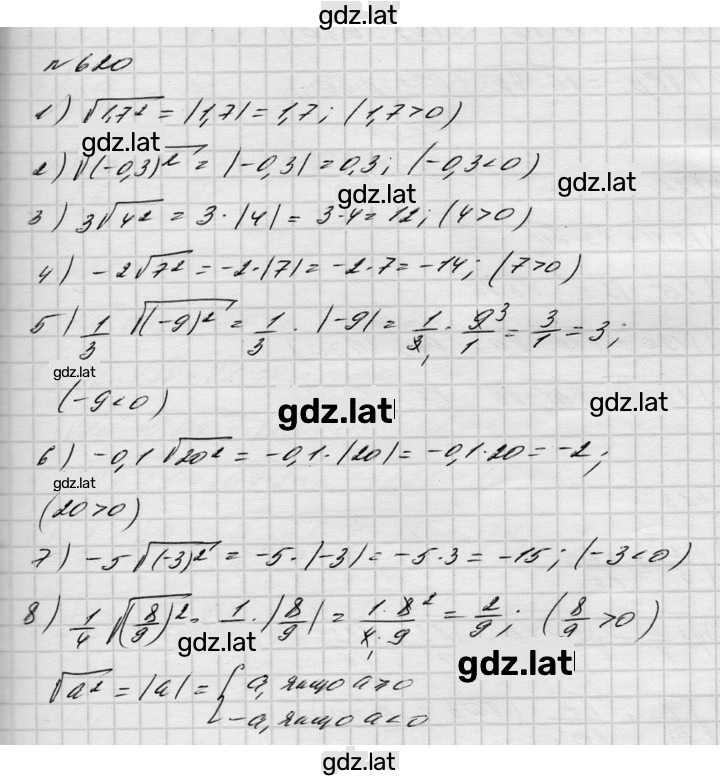 gdz.lat
№620
1) √1,7² = |1,7| = 1,7; (1,7>0)
gdz.lat
2) √(-0,3)² = |-0,3| = 0,3; (-0,3<0)
gdz.lat
gdz.lat
3) 3√4² = 3·|4| = 3·4 = 12; (4>0)
4) -2√7² = -2·|7| = -2·7 = -14; (7>0)
5) 1/3 √(-9)² = 1/3 · |-9| = 1/3₁ · 9³/1 = 3/1 = 3;
gdz.lat
(-9<0)
gdz.lat
gdz.lat
6) -0,1√20² = -0,1·|20| = -0,1·20 = -2;
gdz.lat
(20>0)
7) -5√(-3)² = -5·|-3| = -5·3 = -15; (-3<0)
8) 1/4 √(8/9)² = 1 · |8/9| = 1·8²/4₁·9 = 2/9; (8/9 >0)
gdz.lat
gdz.lat
√a² = |a| = { a, якщо a≥0
-a, якщо a<0
gdz.lat